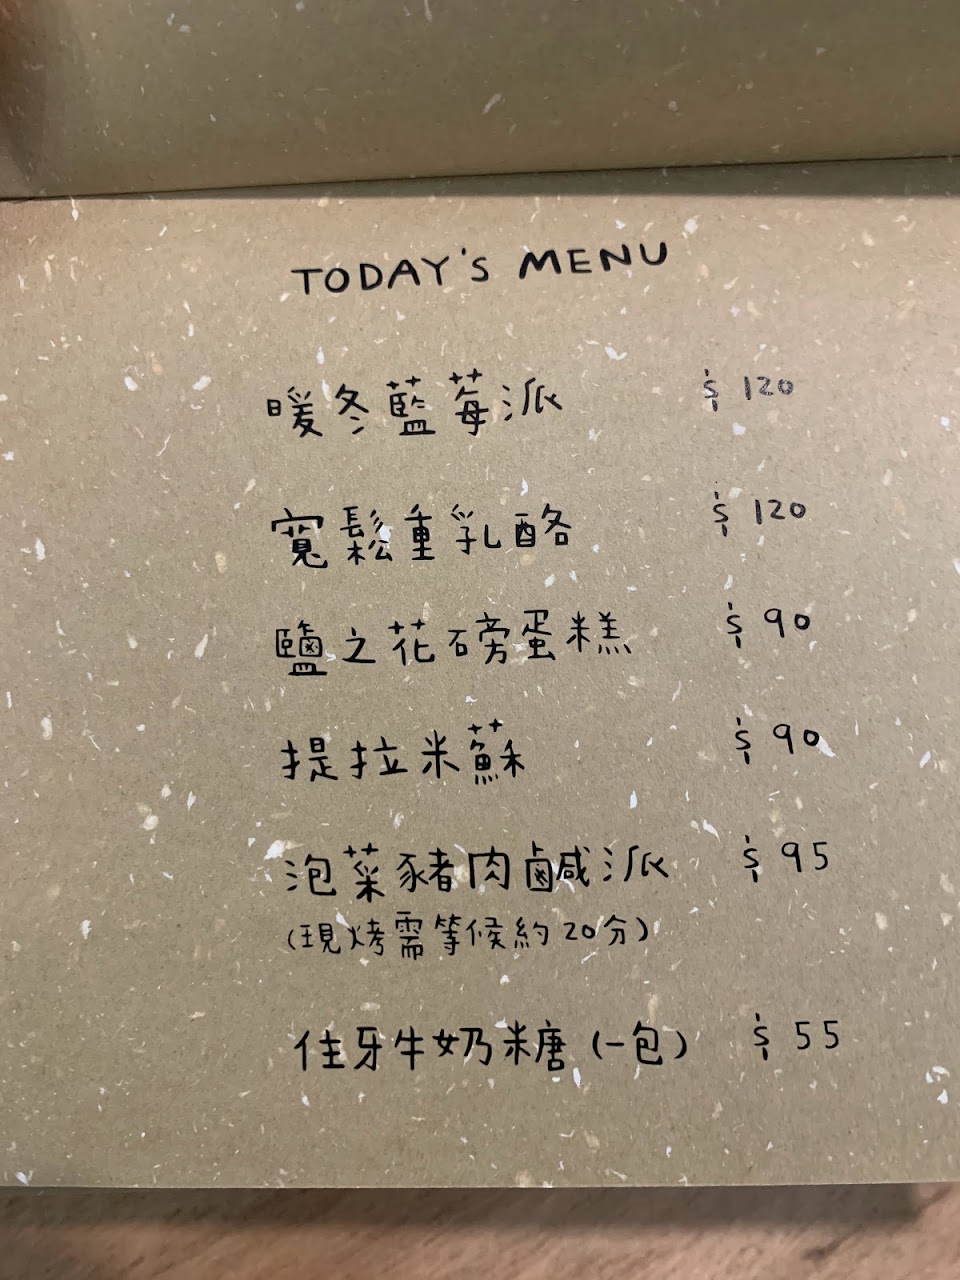 TODAY'S MENU
暖冬藍莓派 $120
寬鬆重乳酪 $120
鹽之花磅蛋糕 $90
提拉米蘇 $90
泡菜豬肉鹹派 $95
(現烤需等候約20分)
住牙牛奶糖(一包) $55